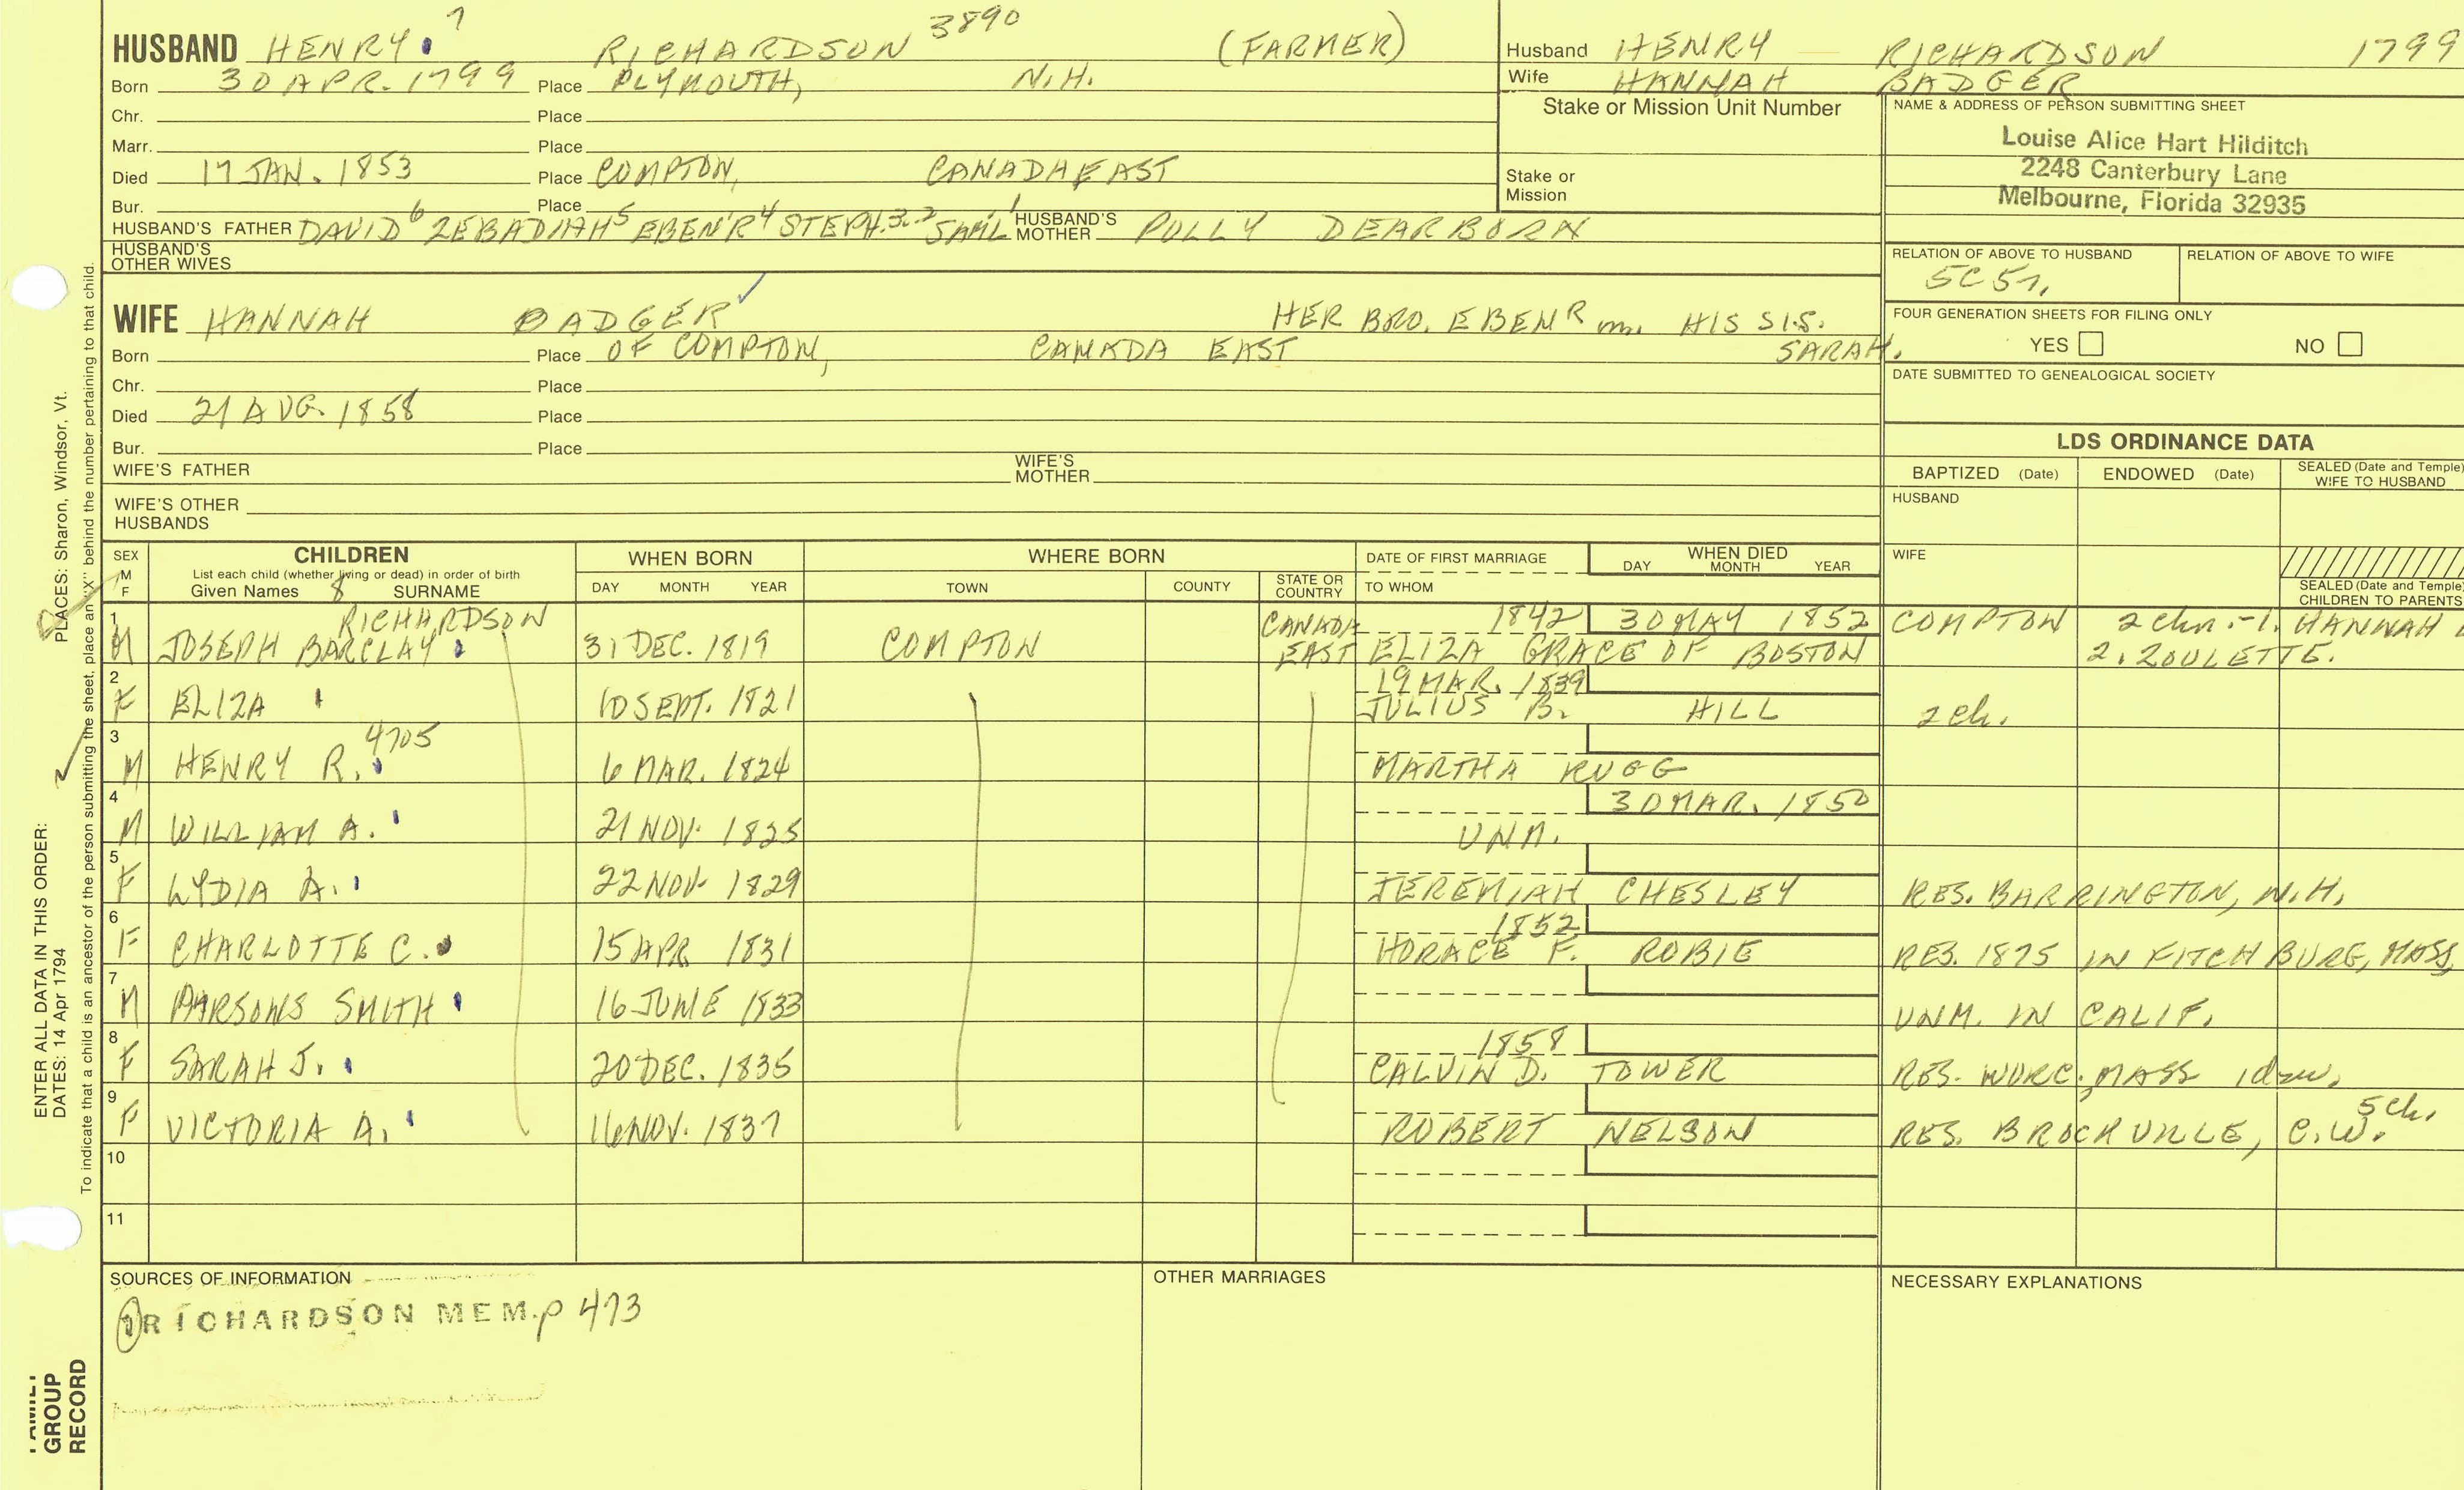 HUSBAND HENRY 7 RICHARDSON 3890 (FARMER)
Born 30 APR. 1799 Place PLYMOUTH, N.H.
Chr. Place
Marr. Place
Died 17 JAN. 1853 Place COMPTON, CANADA EAST
Bur. Place
HUSBAND'S FATHER DAVID 6 ZEBADIAH 5 EBEN'R 4 STEPH. 3-2 SAM'L 1 HUSBAND'S MOTHER POLLY DEARBORN
HUSBAND'S OTHER WIVES
Husband HENRY RICHARDSON 1799
Wife HANNAH BADGER
Stake or Mission Unit Number
Stake or Mission
NAME & ADDRESS OF PERSON SUBMITTING SHEET
Louise Alice Hart Hilditch
2248 Canterbury Lane
Melbourne, Florida 32935
RELATION OF ABOVE TO HUSBAND RELATION OF ABOVE TO WIFE
FOUR GENERATION SHEETS FOR FILING ONLY
YES NO
DATE SUBMITTED TO GENEALOGICAL SOCIETY
WIFE HANNAH BADGER HER BRO. EBEN R m. HIS SIS. SARAH.
Born Place OF COMPTON, CANADA EAST
Chr. Place
Died 21 AUG. 1858 Place
Bur. Place
WIFE'S FATHER WIFE'S MOTHER
WIFE'S OTHER HUSBANDS
LDS ORDINANCE DATA
BAPTIZED (Date) ENDOWED (Date) SEALED (Date and Temple) WIFE TO HUSBAND
HUSBAND
WIFE
SEALED (Date and Temple) CHILDREN TO PARENTS
SEX M F
CHILDREN
List each child (whether living or dead) in order of birth
Given Names 8 SURNAME
WHEN BORN
DAY MONTH YEAR
WHERE BORN
TOWN COUNTY STATE OR COUNTRY
DATE OF FIRST MARRIAGE
TO WHOM
WHEN DIED
DAY MONTH YEAR
1 RICHARDSON CANADA 1842 30 MAY 1852 COMPTON 2 chn.-1. HANNAH
M JOSEPH BARCLAY 31 DEC. 1819 COMPTON EAST ELIZA GRACE OF BOSTON 2. ZOULETTE.
2 19 MAR. 1839
F ELIZA 10 SEPT. 1821 JULIUS B. HILL 2 ch.
3 4705
M HENRY R. 6 MAR. 1824 MARTHA RUGG
4 30 MAR. 1850
M WILLIAM A. 21 NOV. 1825 UNM.
5
F LYDIA A. 22 NOV. 1829 JEREMIAH CHESLEY RES. BARRINGTON, N.H.
6 1852
F CHARLOTTE C. 15 APR 1831 HORACE F. ROBIE RES. 1875 IN FITCHBURG, MASS.
7
M PARSONS SMITH 16 JUNE 1833 UNM. IN CALIF.
8 1858
F SARAH J. 20 DEC. 1835 CALVIN D. TOWER RES. WORC., MASS 1 daw.
9 5 ch.
F VICTORIA A. 16 NOV. 1837 ROBERT NELSON RES. BROCKVILLE, C.W.
10
11
SOURCES OF INFORMATION
1 RICHARDSON MEM. p 473
OTHER MARRIAGES
NECESSARY EXPLANATIONS
ENTER ALL DATA IN THIS ORDER:
DATES: 14 Apr 1794
PLACES: Sharon, Windsor, Vt.
To indicate that a child is an ancestor of the person submitting the sheet, place an "X" behind the number pertaining to that child.
FAMILY
GROUP
RECORD